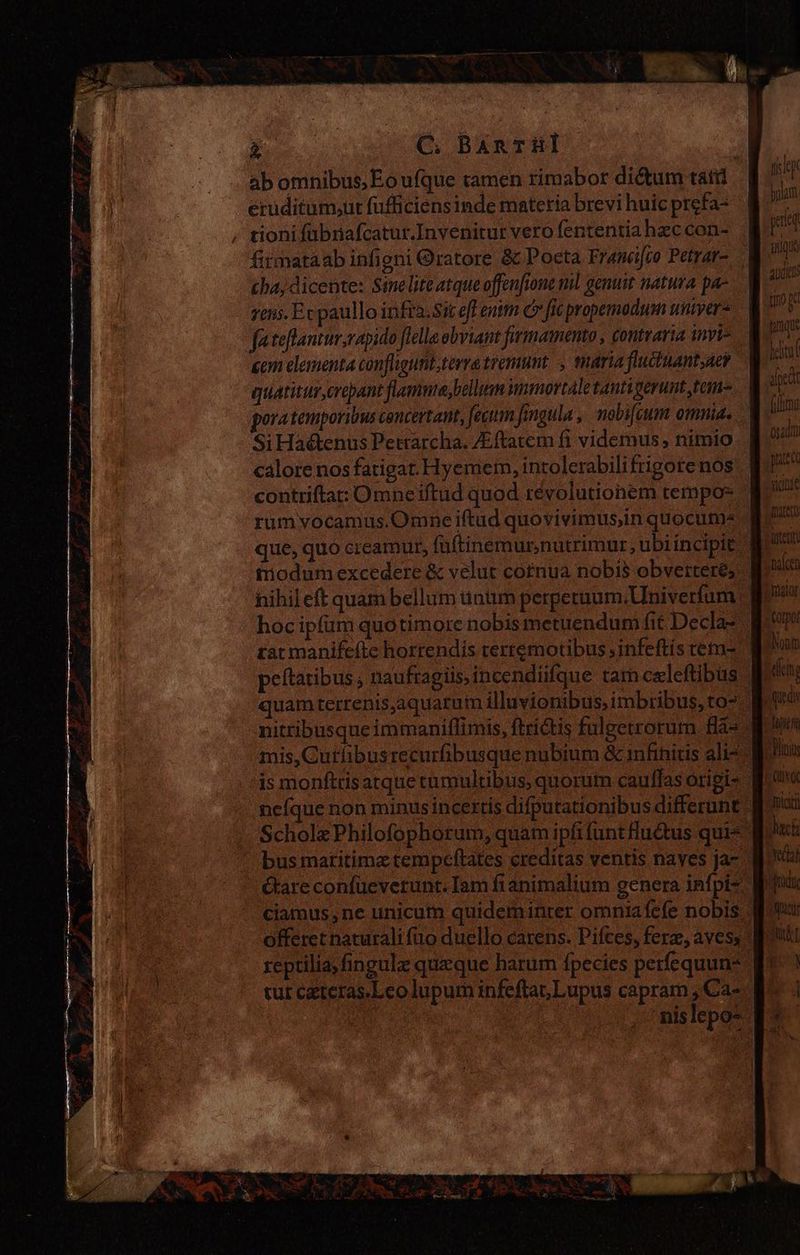 2 C. BARTHI
ab omnibus, Eo uſque tamen rimabor dictum tam
eruditum, ut ſufficiens inde materia brevi huic præfa-
tioni ſubnaſcatur. Invenitur vero ſententia hæc con-
firmata ab inſigni Oratore & Poeta Franciſco Petrar-
cha, dicente: Sine lite atque offenſione nil genuit natura pa-
rens. Et paullo infra. Sic eſt enim & ſic propemodum univer-
ſa teſtantur, rapido ſtellæ obviant firmamento, contraria invi-
cem elementa confligunt, terræ tremunt, maria fluctuant, aer
quatitur, crepant flammæ, bellum immortale tanti gerunt, tem-
pora temporibus concertant, ſecum ſingula, nobiſcum omnia.
Si Hactenus Petrarcha. Æſtatem ſi videmus, nimio
calore nos fatigat. Hyemem, intolerabili frigore nos
contriſtat: Omne iſtud quod revolutionem tempo-
rum vocamus. Omne iſtud quo vivimus, in quocum-
que, quo creamur, ſuſtinemur, nutrimur, ubi incipit
modum excedere & velut cornua nobis obvertere,
nihil eſt quam bellum unum perpetuum. Univerſum
hoc ipſum quo timore nobis metuendum ſit Decla-
rat manifeſte horrendis terræmotibus, infeſtis tem-
peſtatibus, naufragiis, incendiiſque tam cæleſtibus
quam terrenis, aquarum illuvionibus, imbribus, to-
nitribusque immaniſſimis, ſtrictis fulgetrorum fla-
mis, Curſibus recurſibusque nubium & infinitis ali-
is monſtris atque tumultibus, quorum cauſſas origi-
neſque non minus incertis diſputationibus differunt
Scholæ Philoſophorum, quam ipſi ſunt fluctus qui-
bus maritimæ tempeſtates creditas ventis naves ja-
ctare conſueverunt. Iam ſi animalium genera inſpi-
ciamus, ne unicum quidem inter omnia ſeſe nobis
offeret naturali ſuo duello carens. Piſces, feræ, aves,
reptilia, ſingulæ quæque harum ſpecies perſequun-
tur cæteras. Leo lupum infeſtat, Lupus capram, Ca-
nis lepo-